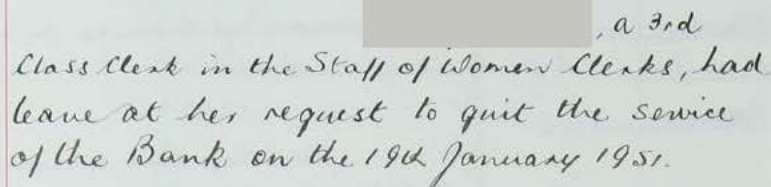 , a 3rd
Class Clerk in the Staff of Women Clerks, had
leave at her request to quit the service
of the Bank on the 19th January 1951.